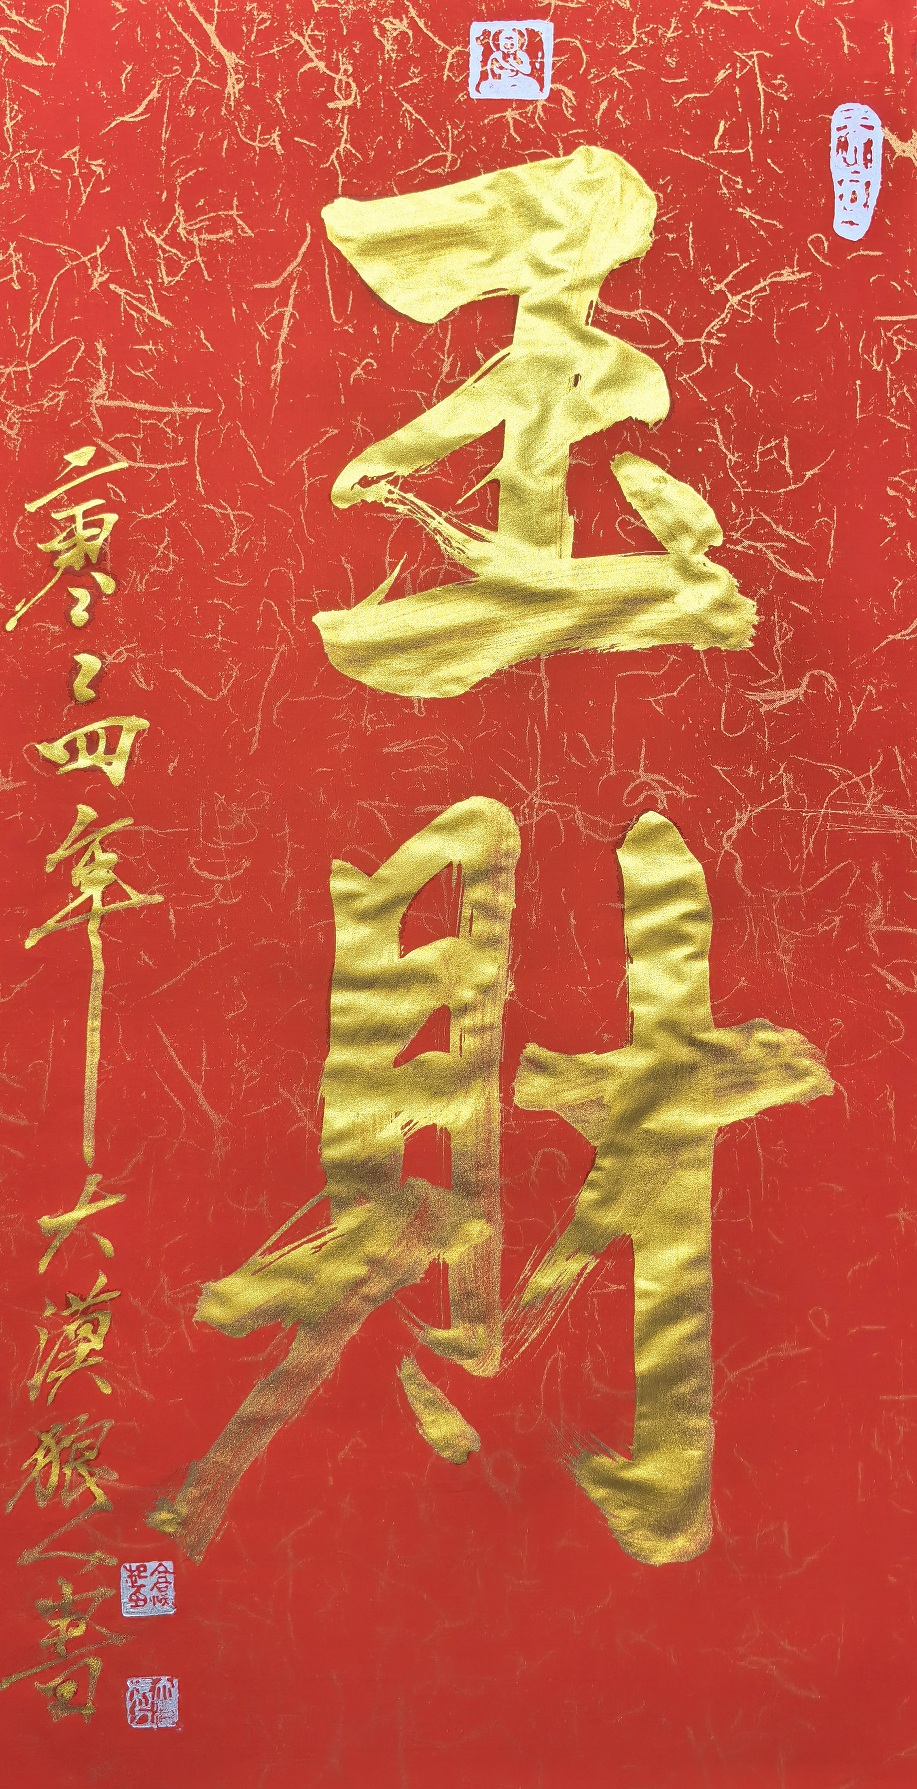 玉財
二零二四年大漠狼人書